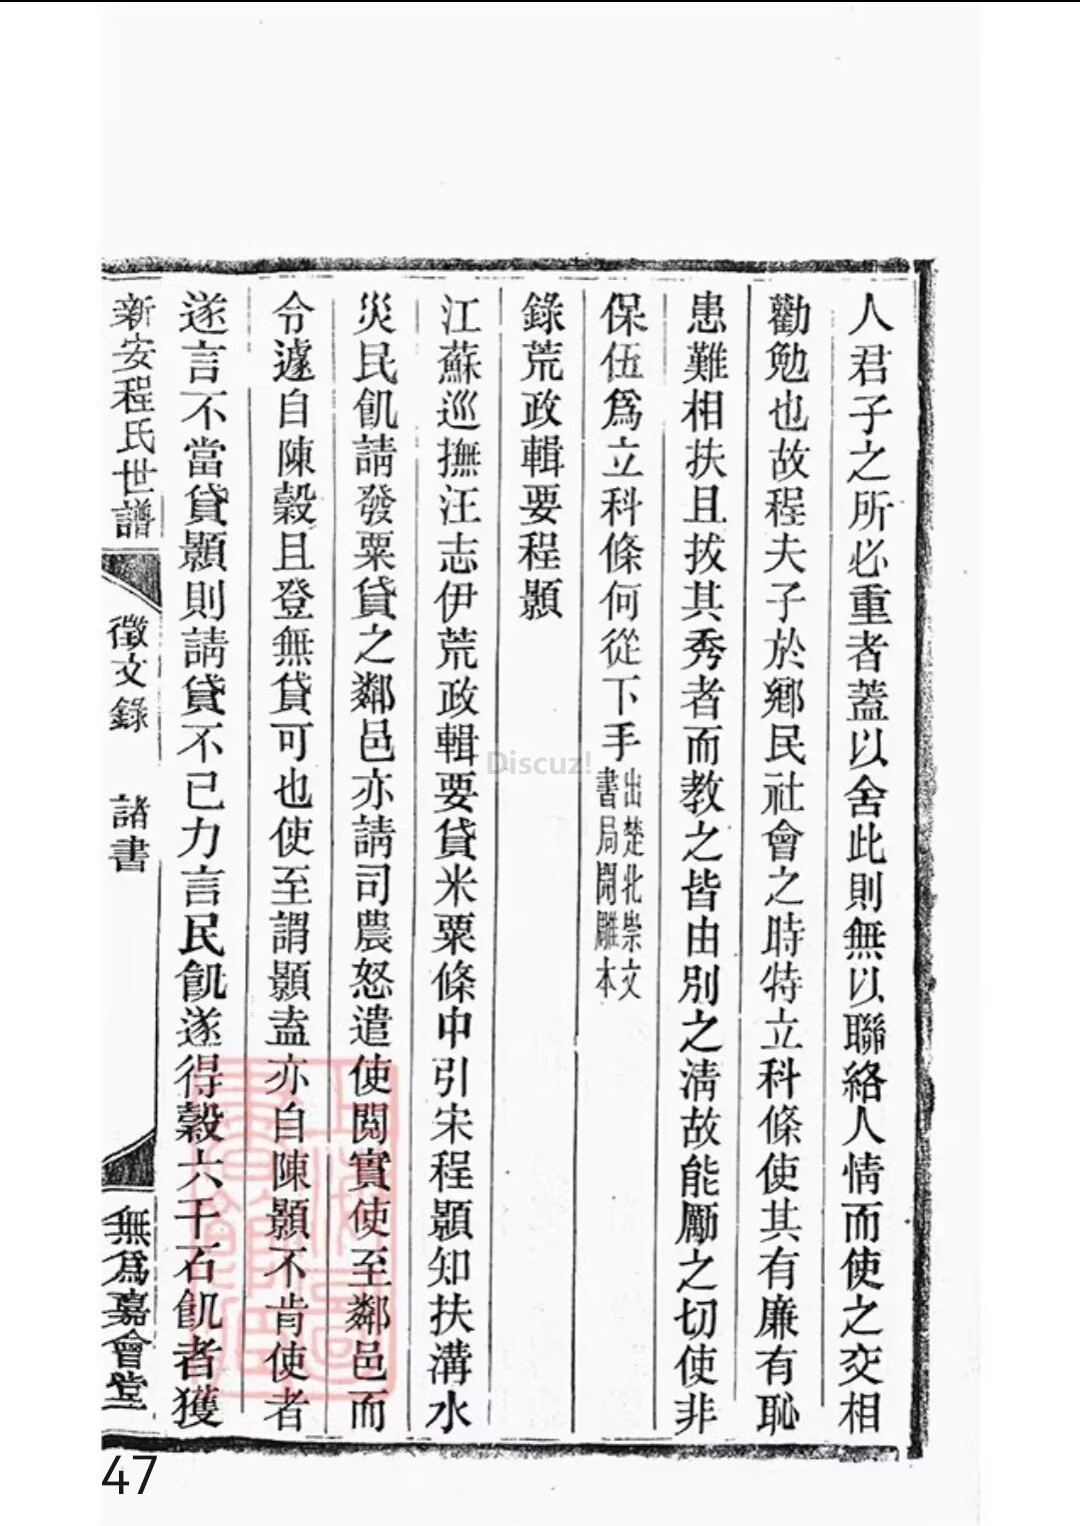 人君子之所必重者蓋以舍此則無以聯絡人情而使之交相
勸勉也故程夫子於鄉民社會之時特立科條使其有廉有恥
患難相扶且拔其秀者而教之皆由別之淸故能勵之切使非
保伍爲立科條何從下手出楚北崇文書局開雕本
錄荒政輯要程顥
江蘇巡撫汪志伊荒政輯要貸米粟條中引宋程顥知扶溝水
災民飢請發粟貸之鄰邑亦請司農怒遣使閱實使至鄰邑而
令遽自陳穀且登無貸可也使至謂顥盍亦自陳顥不肯使者
遂言不當貸顥則請貸不已力言民飢遂得穀六千石飢者獲
新安程氏世譜
徵文錄 諸書
無爲嘉會堂
Discuz!
47